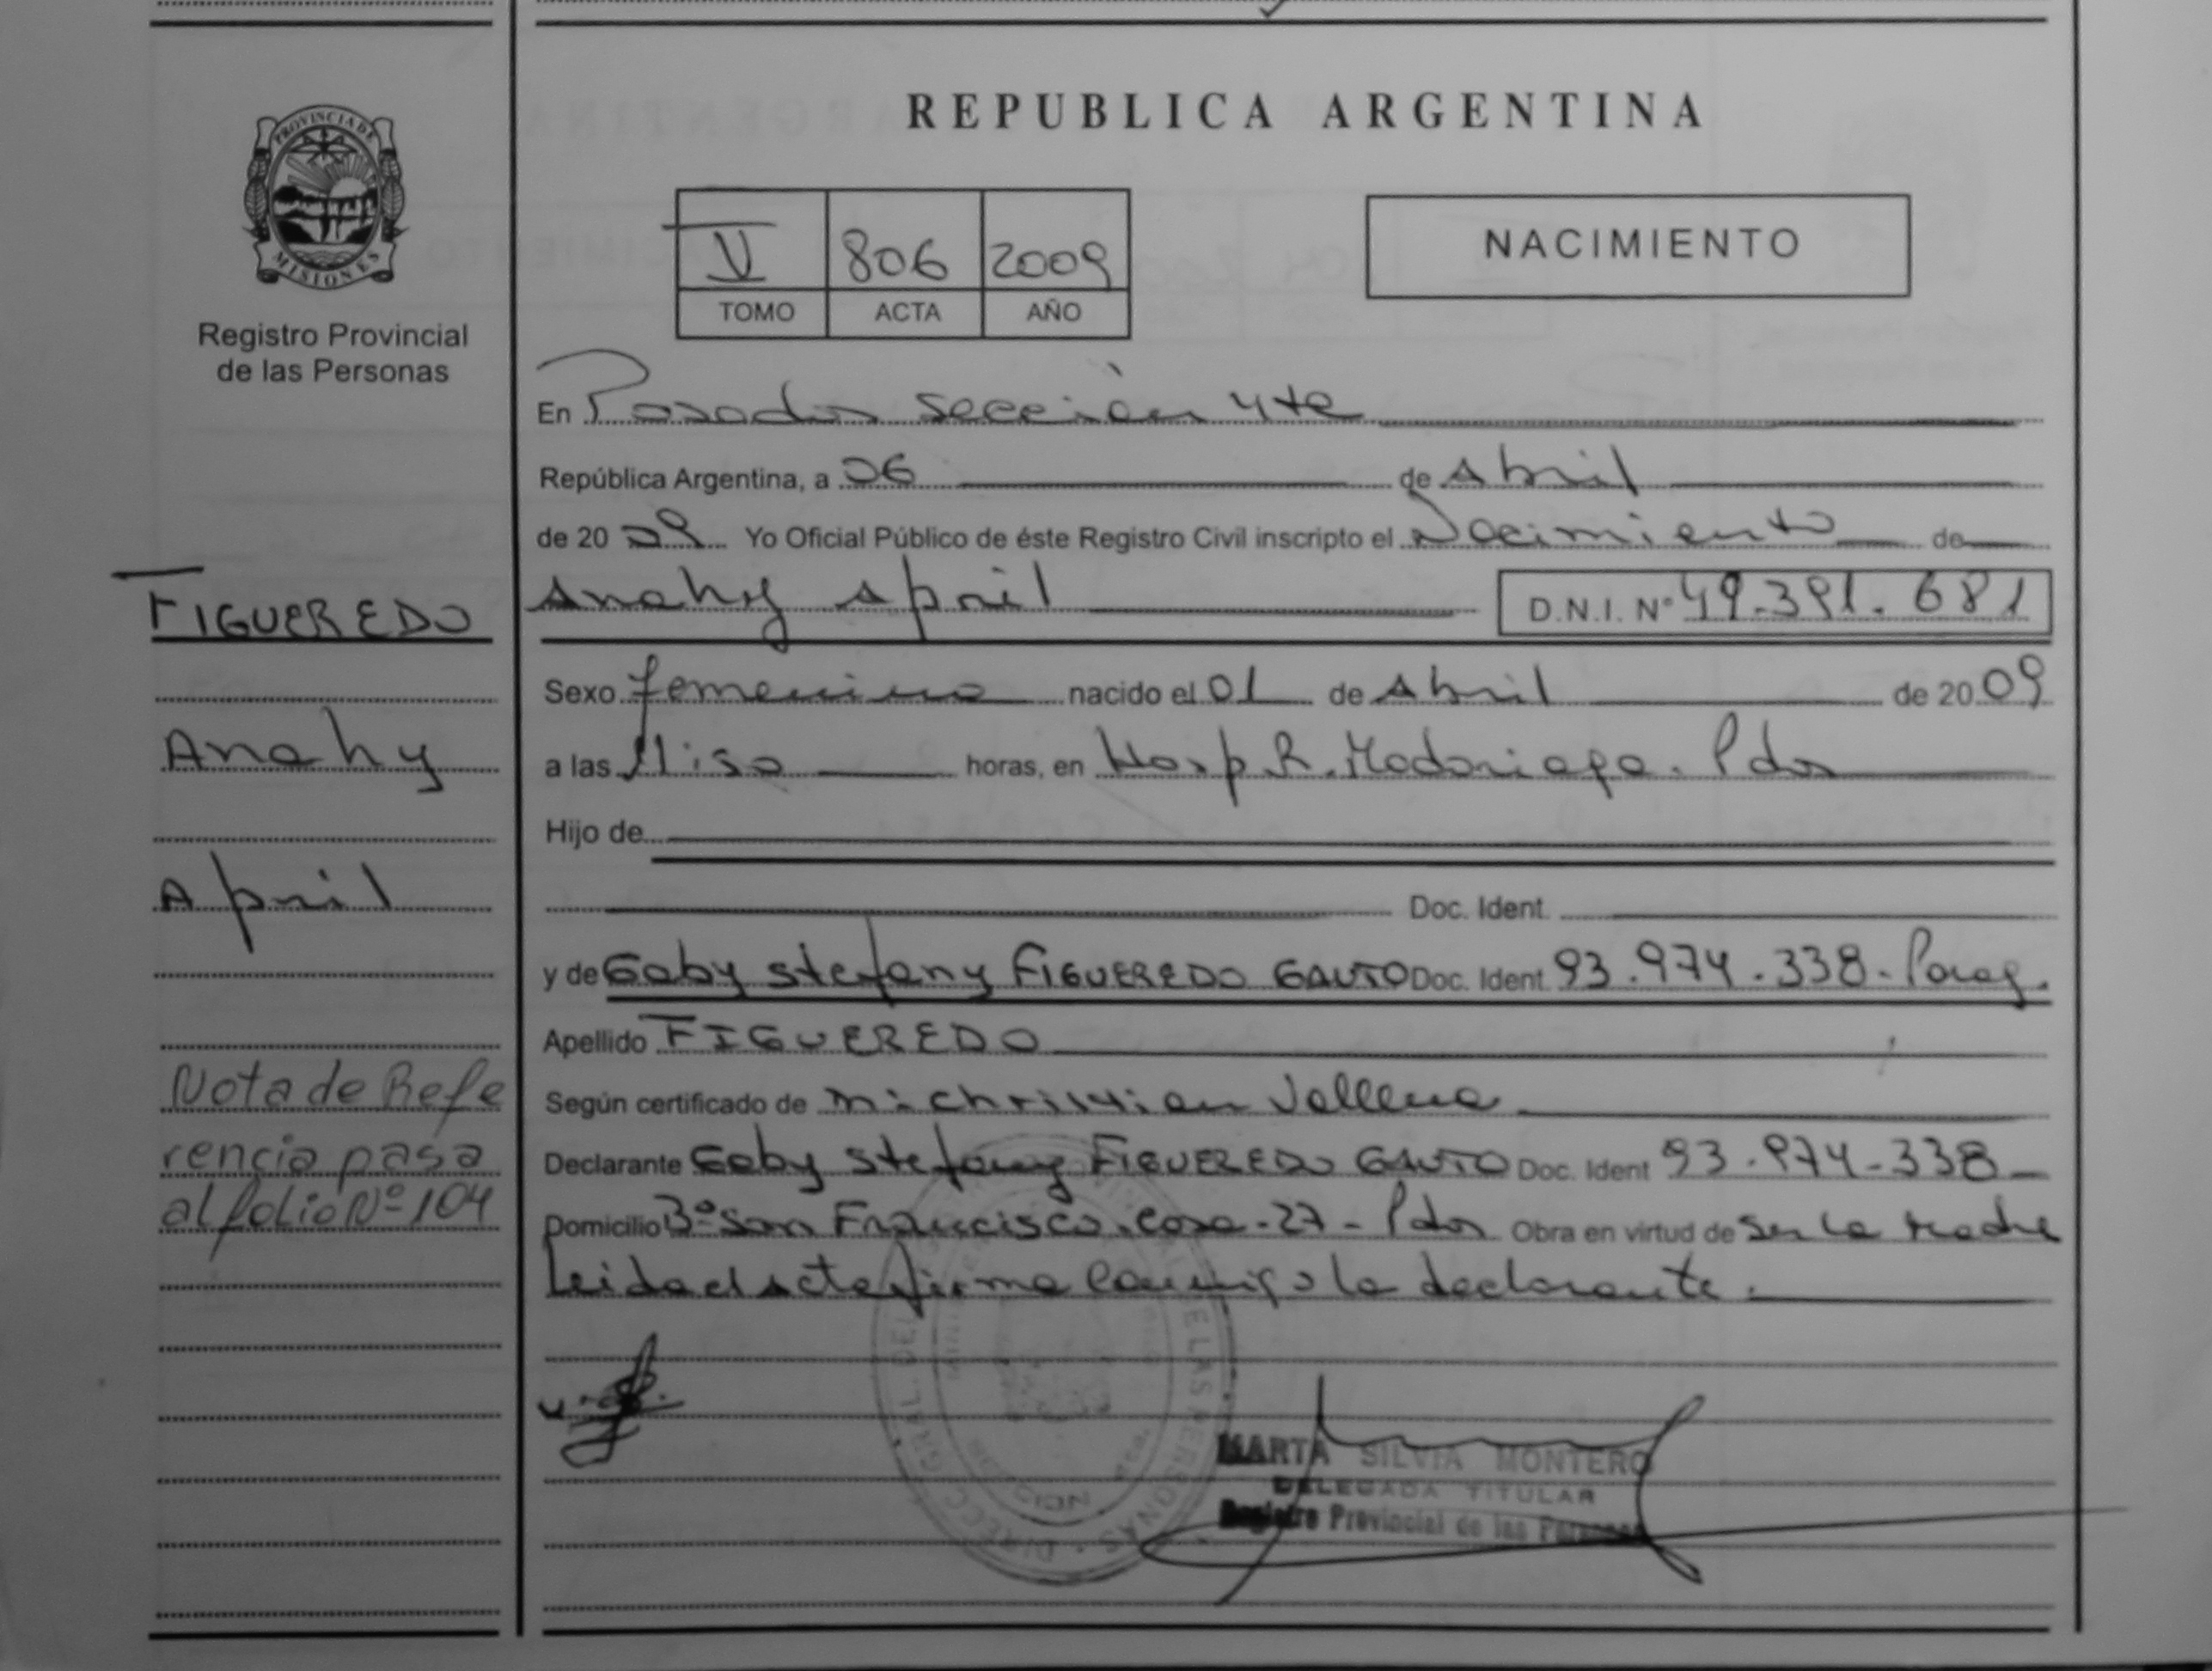 PROVINCIA DE
MISIONES
Registro Provincial
de las Personas
FIGUEREDO
Anahy
April
Nota de Refe
rencia pasa
al folio Nº 104
REPUBLICA ARGENTINA
V 806 2009
TOMO ACTA AÑO
NACIMIENTO
En Posadas Sección 4ta
República Argentina, a 06 de Abril
de 20 09 Yo Oficial Público de éste Registro Civil inscripto el Nacimiento de
Anahy April D.N.I. Nº 49.391.681
Sexo femenino nacido el 01 de Abril de 20 09
a las horas, en Hosp R. Madariaga. Pdas
Hijo de
Doc. Ident.
y de Gaby Stefany FIGUEREDO GAUTO Doc. Ident 93.974.338 - Parag.
Apellido FIGUEREDO
Según certificado de
Declarante Gaby Stefany FIGUEREDO GAUTO Doc. Ident 93.974-338
Domicilio Bº San Francisco. Casa-27- Pdas Obra en virtud de ser la madre
Leida el acta firma conmigo la declarante.
MARTA SILVIA MONTERO
DELEGADA TITULAR
Registro Provincial de las Personas